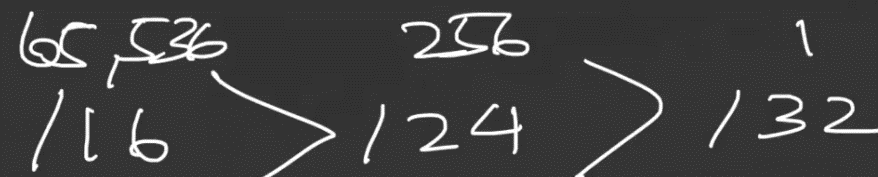 65,536 256 1
/16 > /24 > /32